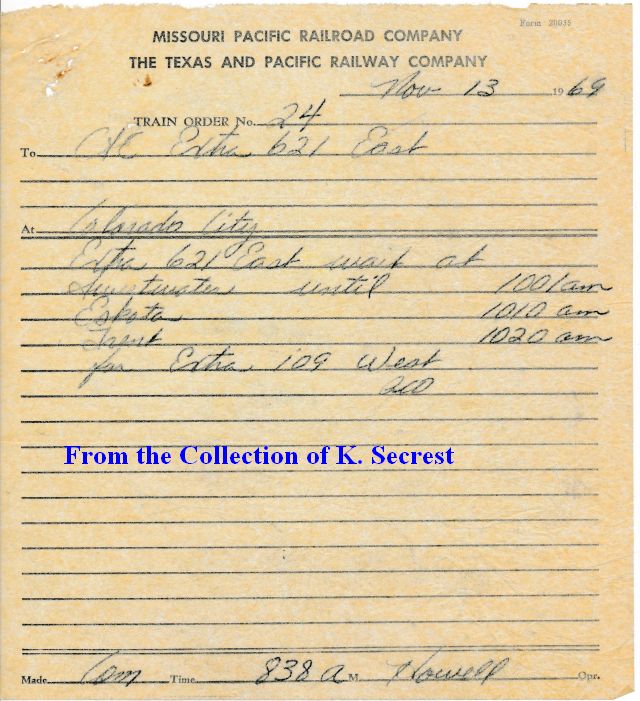 Form 20035
MISSOURI PACIFIC RAILROAD COMPANY
THE TEXAS AND PACIFIC RAILWAY COMPANY
Nov 13 1969
TRAIN ORDER No. 24
To C&E Extra 621 East
At Colorado City
Extra 621 East wait at
Sweetwater until 1001 am
Eskota 1010 am
Trent 1020 am
for Extra 109 West
From the Collection of K. Secrest
Made Com Time 838 A M. Howell Opr.